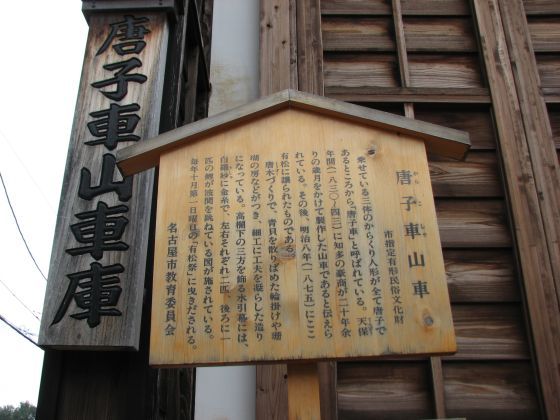 唐子車山車庫
から こ
唐子車山車
市指定有形民俗文化財
乗せている三体のからくり人形が全て唐子で
あるところから「唐子車」と呼ばれている。天保
年間(一八三〇〜四三)に知多の豪商が二十年余
りの歳月をかけて製作した山車であると伝えら
れている。その後、明治八年(一八七五)にここ
有松に譲られたものである。
唐木づくりで、青貝を散りばめた輪掛けや珊
瑚の房などがつき、細工に工夫を凝らした造り
になっている。高欄下の三方を飾る水引幕には、
白羅紗に金糸で、左右それぞれ二匹、後ろに一
匹の鯉が波間を跳ねている図が施されている。
毎年十月第一日曜日の「有松祭」に曳きだされる。
名古屋市教育委員会